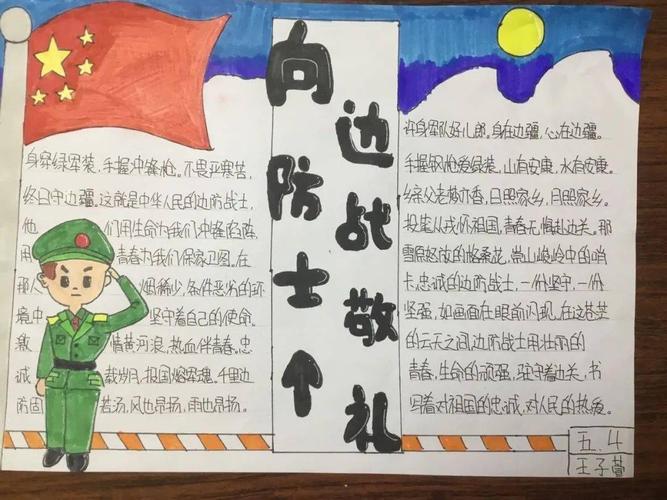 向边防战士敬礼
身穿绿军装，手握冲锋枪。不畏严寒苦，
终日守边疆，这就是中华人民的边防战士，
他们用生命为我们冲锋陷阵，
用青春为我们保家卫国。在
那人烟稀少，条件恶劣的环
境中坚守着自己的使命。
激情黄河浪，热血伴青春。忠
诚载岁月，祖国熔军魂。千里边
防固若汤，风也昂扬，雨也昂扬。
许身军队好儿郎，身在边疆，心在边疆。
手握钢枪爱绿装，山有安康，水有安康。
乡亲父老梦亦香，日照家乡，月照家乡。
投笔从戎怀祖国，青春无悔赴边关。那
雪原怒放的格桑花，崇山峻岭中的哨
卡，忠诚的边防战士，一份坚守，一份
坚强，如画面在眼前闪现，在这苍茫
的云天之间，边防战士用壮丽的
青春，生命的顽强，驻守着边关，书
写着对祖国的忠诚，对人民的热爱。
五.4
王子萱